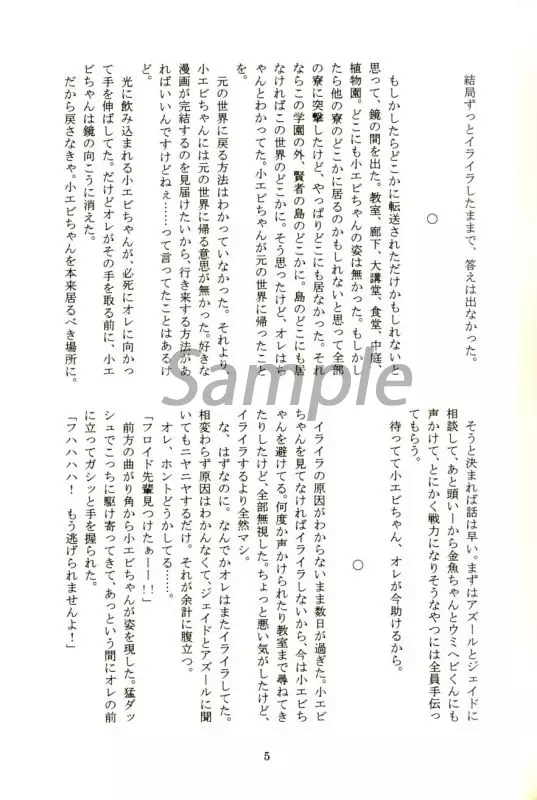 結局ずっとイライラしたままで、答えは出なかった。
○
もしかしたらどこかに転送されただけかもしれないと
思って、鏡の間を出た。教室、廊下、大講堂、食堂、中庭、
植物園。どこにも小エビちゃんの姿は無かった。もしかし
たら他の寮のどこかに居るのかもしれないと思って全部
の寮に突撃したけど、やっぱりどこにも居なかった。それ
ならこの学園の外、賢者の島のどこかに。島のどこにも居
なければこの世界のどこかに。そう思ったけど、オレはち
ゃんとわかってた。小エビちゃんが元の世界に帰ったこと
を。
元の世界に戻る方法はわかっていなかった。それより、
小エビちゃんには元の世界に帰る意思が無かった。好きな
漫画が完結するのを見届けたいから、行き来する方法があ
ればいいんですけどねぇ……って言ってたことはあるけ
ど。
光に飲み込まれる小エビちゃんが、必死にオレに向かっ
て手を伸ばしてた。だけどオレがその手を取る前に、小エ
ビちゃんは鏡の向こうに消えた。
だから戻さなきゃ。小エビちゃんを本来居るべき場所に。
そうと決まれば話は早い。まずはアズールとジェイドに
相談して、あと頭いーから金魚ちゃんとウミヘビくんにも
声かけて、とにかく戦力になりそうなやつには全員手伝っ
てもらう。
待っててて小エビちゃん、オレが今助けるから。
○
イライラの原因がわからないまま数日が過ぎた。小エビ
ちゃんを見てなければイライラしないから、今は小エビち
ゃんを避けてる。何度か声かけられたり教室まで尋ねてき
たりしたけど、全部無視した。ちょっと悪い気がしたけど、
イライラするより全然マシ。
な、はずなのに。なんでかオレはまたイライラしてた。
相変わらず原因はわかんなくて、ジェイドとアズールに聞
いてもニヤニヤするだけ。それが余計に腹立つ。
オレ、ホントどうかしてる……。
「フロイド先輩見つけたぁーー!!」
前方の曲がり角から小エビちゃんが姿を現した。猛ダッ
シュでこっちに駆け寄ってきて、あっという間にオレの前
に立ってガシッと手を握られた。
「フハハハハ! もう逃げられませんよ!」
Sample
5